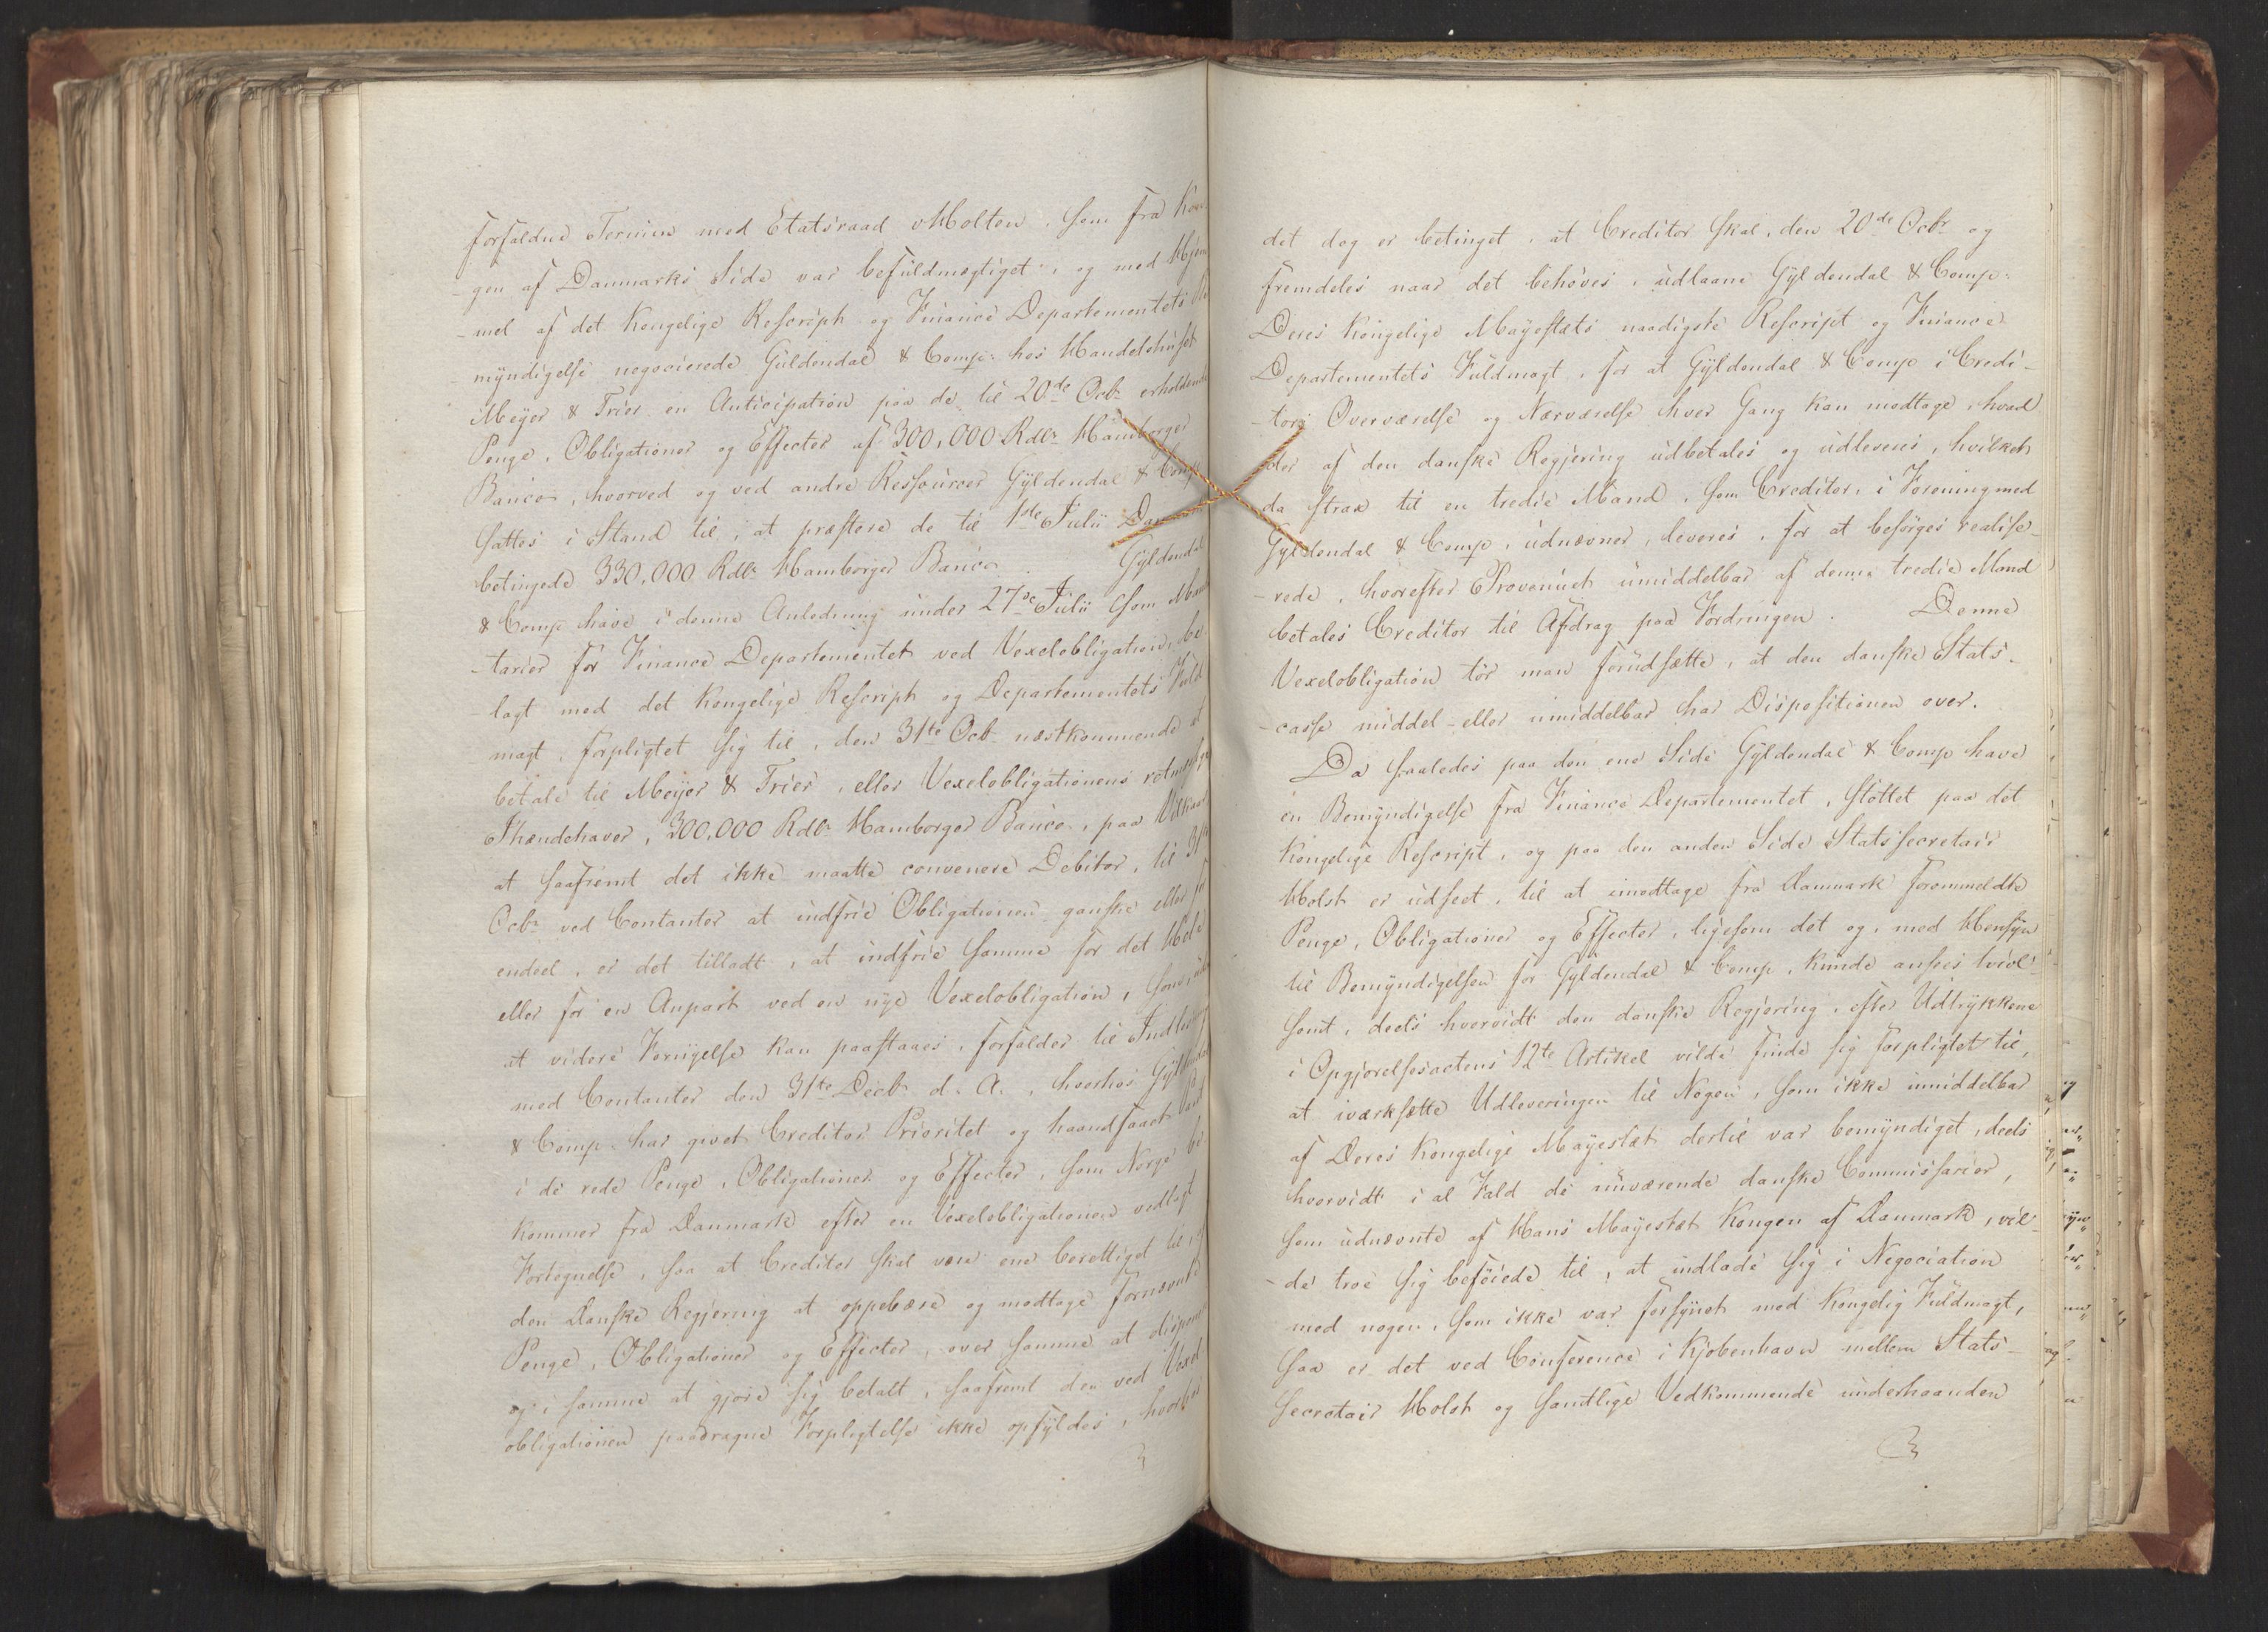 forfaldne Termin med Etatsraad Molten, som fra Kon-
-gen af Danmarks Side var befuldmægtiget, og med Hjem-
-mel af det Kongelige Rescript og Finance Departementets
myndigelse negocierede Gyldendal & Comp: hos Handelshuset
Meyer & Trier en Anticipation paa de til 20de Octbr erholdende
Penge, Obligationer og Effecter af 300,000 Rdlr Hamborger
Banco, hvorved og ved andre Ressourcer Gyldendal & Comp
sattes i Stand til, at præstere de til 1ste Julii
betingede 330,000 Rdlr Hamborger Banco. Gyldendal
& Comp have i denne Anledning under 27de Julii som Man-
-tarier for Finance Departementet ved Vexelobligation, be-
-lagt med det Kongelige Rescript og Departementets Fuld-
magt, forpligtet sig til, den 31te Octb: næstkommende at
betale til Meyer & Trier, eller Vexelobligationens retmæssige
Ihændehaver, 300,000 Rdlr Hamborger Banco, paa Vilkaar
at saafremt det ikke maatte convenere Debitor, til 31te
Octbr ved Contanter at indfrie Obligationen ganske eller for
endeel, er det tilladt, at indfrie samme for det Hele
eller for en Anpart ved en nye Vexelobligation, som, uden
at videre Fornyelse kan paastaaes, forfalder til Indløsning
med Contanter den 31te Decb: d. A., hvorhos Gyldendal
& Comp: har givet Creditor Prioritet og haandfaaet Pant
i de rede Penge, Obligationer og Effecter, som Norge be-
kommer fra Danmark efter en Vexelobligationen vedlagt
Fortegnelse, saa at Creditor skal være ene berettiget til, af
den Danske Regjering at oppebære og modtage fornævnte
Penge, Obligationer og Effecter, over samme at disponere
og i samme at gjøre sig betalt, saafremt den ved Vexel-
obligationen paadragne Forpligtelse ikke opfyldes, hvorhos
det dog er betinget, at Creditor skal, den 20de Octbr og
fremdeles naar det behøves, udlaane Gyldendal & Comp:
Deres Kongelige Mayestæts naadigste Rescript og Finance
Departementets Fuldmagt, for at Gyldendal & Comp i Credi-
-tors Overværelse og Nærværelse hver Gang kan modtage, hvad
der af den danske Regjering udbetales og udleveres, hvilket
da strax til en tredie Mand, som Creditor, i Forening med
Gyldendal & Comp, udnævner, leveres, for at besørges realise-
-rede, hvorefter Provenuet umiddelbar af denne tredie Mand
betales Creditor til Afdrag paa Fordringen. Denne
Vexelobligation tør man forudsætte, at den danske Stats-
-casse middel- eller umiddelbar har Dispositionen over.
Da saaledes paa den ene Side Gyldendal & Comp have
en Bemyndigelse fra Finance Departementet, støttet paa det
Kongelige Rescript, og paa den anden Side Statssecretair
Holst er udseet, til at imodtage fra Danmark forommeldte
Penge, Obligationer og Effecter, ligesom det og, med Hensyn
til Bemyndigelsen for Gyldendal & Comp, kunde ansees tvivl-
somt, deels hvorvidt den danske Regjering, efter Udtrykkene
i Opgjørelsesactens 12te Artikel vilde finde sig forpligtet til,
at iværksætte Udleveringen til Nogen, som ikke umiddelbar
af Deres Kongelige Mayestæt dertil var bemyndiget, deels
hvorvidt i al Fald de nuværende danske Commissarier,
som udnævnte af Hans Mayestæt Kongen af Danmark, vil-
-de troe sig beføiede til, at indlade sig i Negociation
med nogen, som ikke var forsynet med Kongelig Fuldmagt,
saa er det ved Conference i Kjøbenhavn mellem Stats-
secretair Holst og samtlige Vedkommende underhaanden